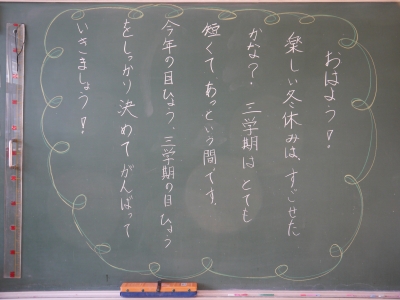 おはよう！
楽しい冬休みは、すごせた
かな？ 三学期は とても
短くて、あっという間です。
今年の目ひょう、三学期の目ひょう
をしっかり決めてがんばって
いきましょう！